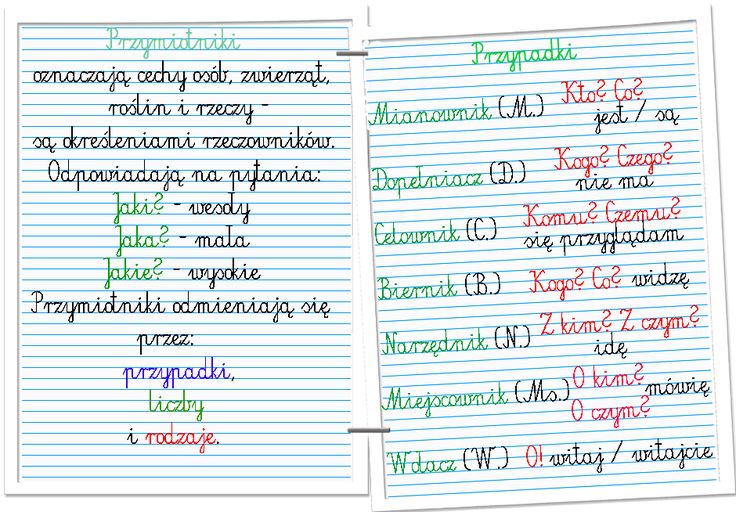 Przymiotniki
oznaczają cechy osób, zwierząt,
roślin i rzeczy -
są określeniami rzeczowników.
Odpowiadają na pytania:
Jaki? - wesoły
Jaka? - mała
Jakie? - wysokie
Przymiotniki odmieniają się
przez:
przypadki,
liczby
i rodzaje.
Przypadki
Mianownik (M.) Kto? Co?
jest / są
Dopełniacz (D.) Kogo? Czego?
nie ma
Celownik (C.) Komu? Czemu?
się przyglądam
Biernik (B.) Kogo? Co? widzę
Narzędnik (N.) Z kim? Z czym?
idę
Miejscownik (Ms.) O kim? mówię
O czym?
Wołacz (W.) O! witaj / witajcie